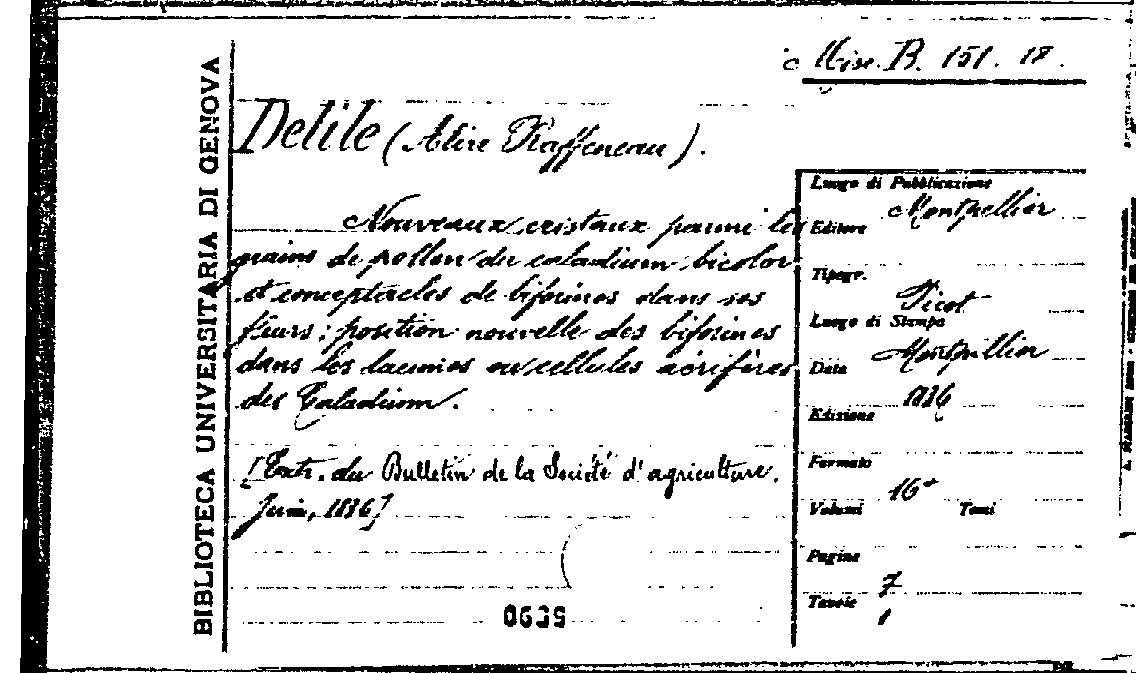 Misc. B. 151. 18.
BIBLIOTECA UNIVERSITARIA DI GENOVA
Delile (Alire Raffeneau).
Nouveaux cristaux parmi les
grains de pollen du caladium bicolor
et conceptacles de biforines dans ses
fleurs: position nouvelle des biforines
dans les lacunes ou cellules aérifères
des Caladium.
[Extr. du Bulletin de la Société d'agriculture.
Juin, 1836]
0639
Luogo di Pubblicazione
Montpellier
Editore
Tipogr.
Picot
Luogo di Stampa
Montpellier
Data
1836
Edizione
Formato
16°
Volumi Tomi
Pagine
7
Tavole
1